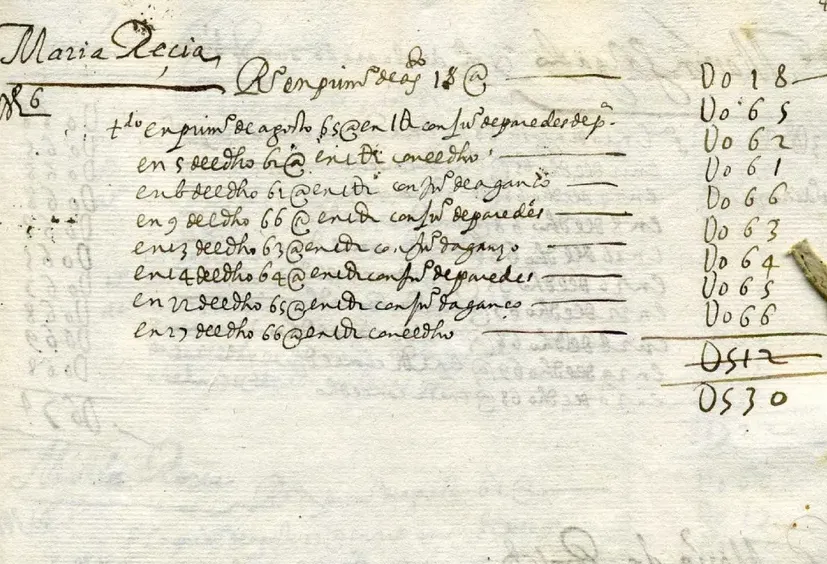 Maria Recia
Rs en prim° de ag° 18 @ U018
N 6
+do en prim° de agosto 65 @ en 1 di con Ju° de paredes de pa. U065
en 5 de el dho 62 @ en 1 di con el dho U062
en 6 de el dho 61 @ en 1 di con Ju° de aganço U061
en 9 de el dho 66 @ en 1 di con Ju° de paredes U066
en 13 de el dho 63 @ en 1 di con Ju° daganzo U063
en 14 de el dho 64 @ en 1 di con Ju° de paredes U064
en 22 de el dho 65 @ en 1 di con Ju° daganço U065
en 27 de el dho 66 @ en 1 di con el dho U066
U512
U530